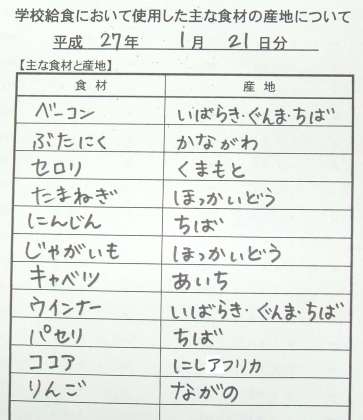 学校給食において使用した主な食材の産地について
平成 27年 1月 21日分
【主な食材と産地】
食材 産地
ベーコン いばらき・ぐんま・ちば
ぶたにく かながわ
セロリ くまもと
たまねぎ ほっかいどう
にんじん ちば
じゃがいも ほっかいどう
キャベツ あいち
ウインナー いばらき・ぐんま・ちば
パセリ ちば
ココア にしアフリカ
りんご ながの